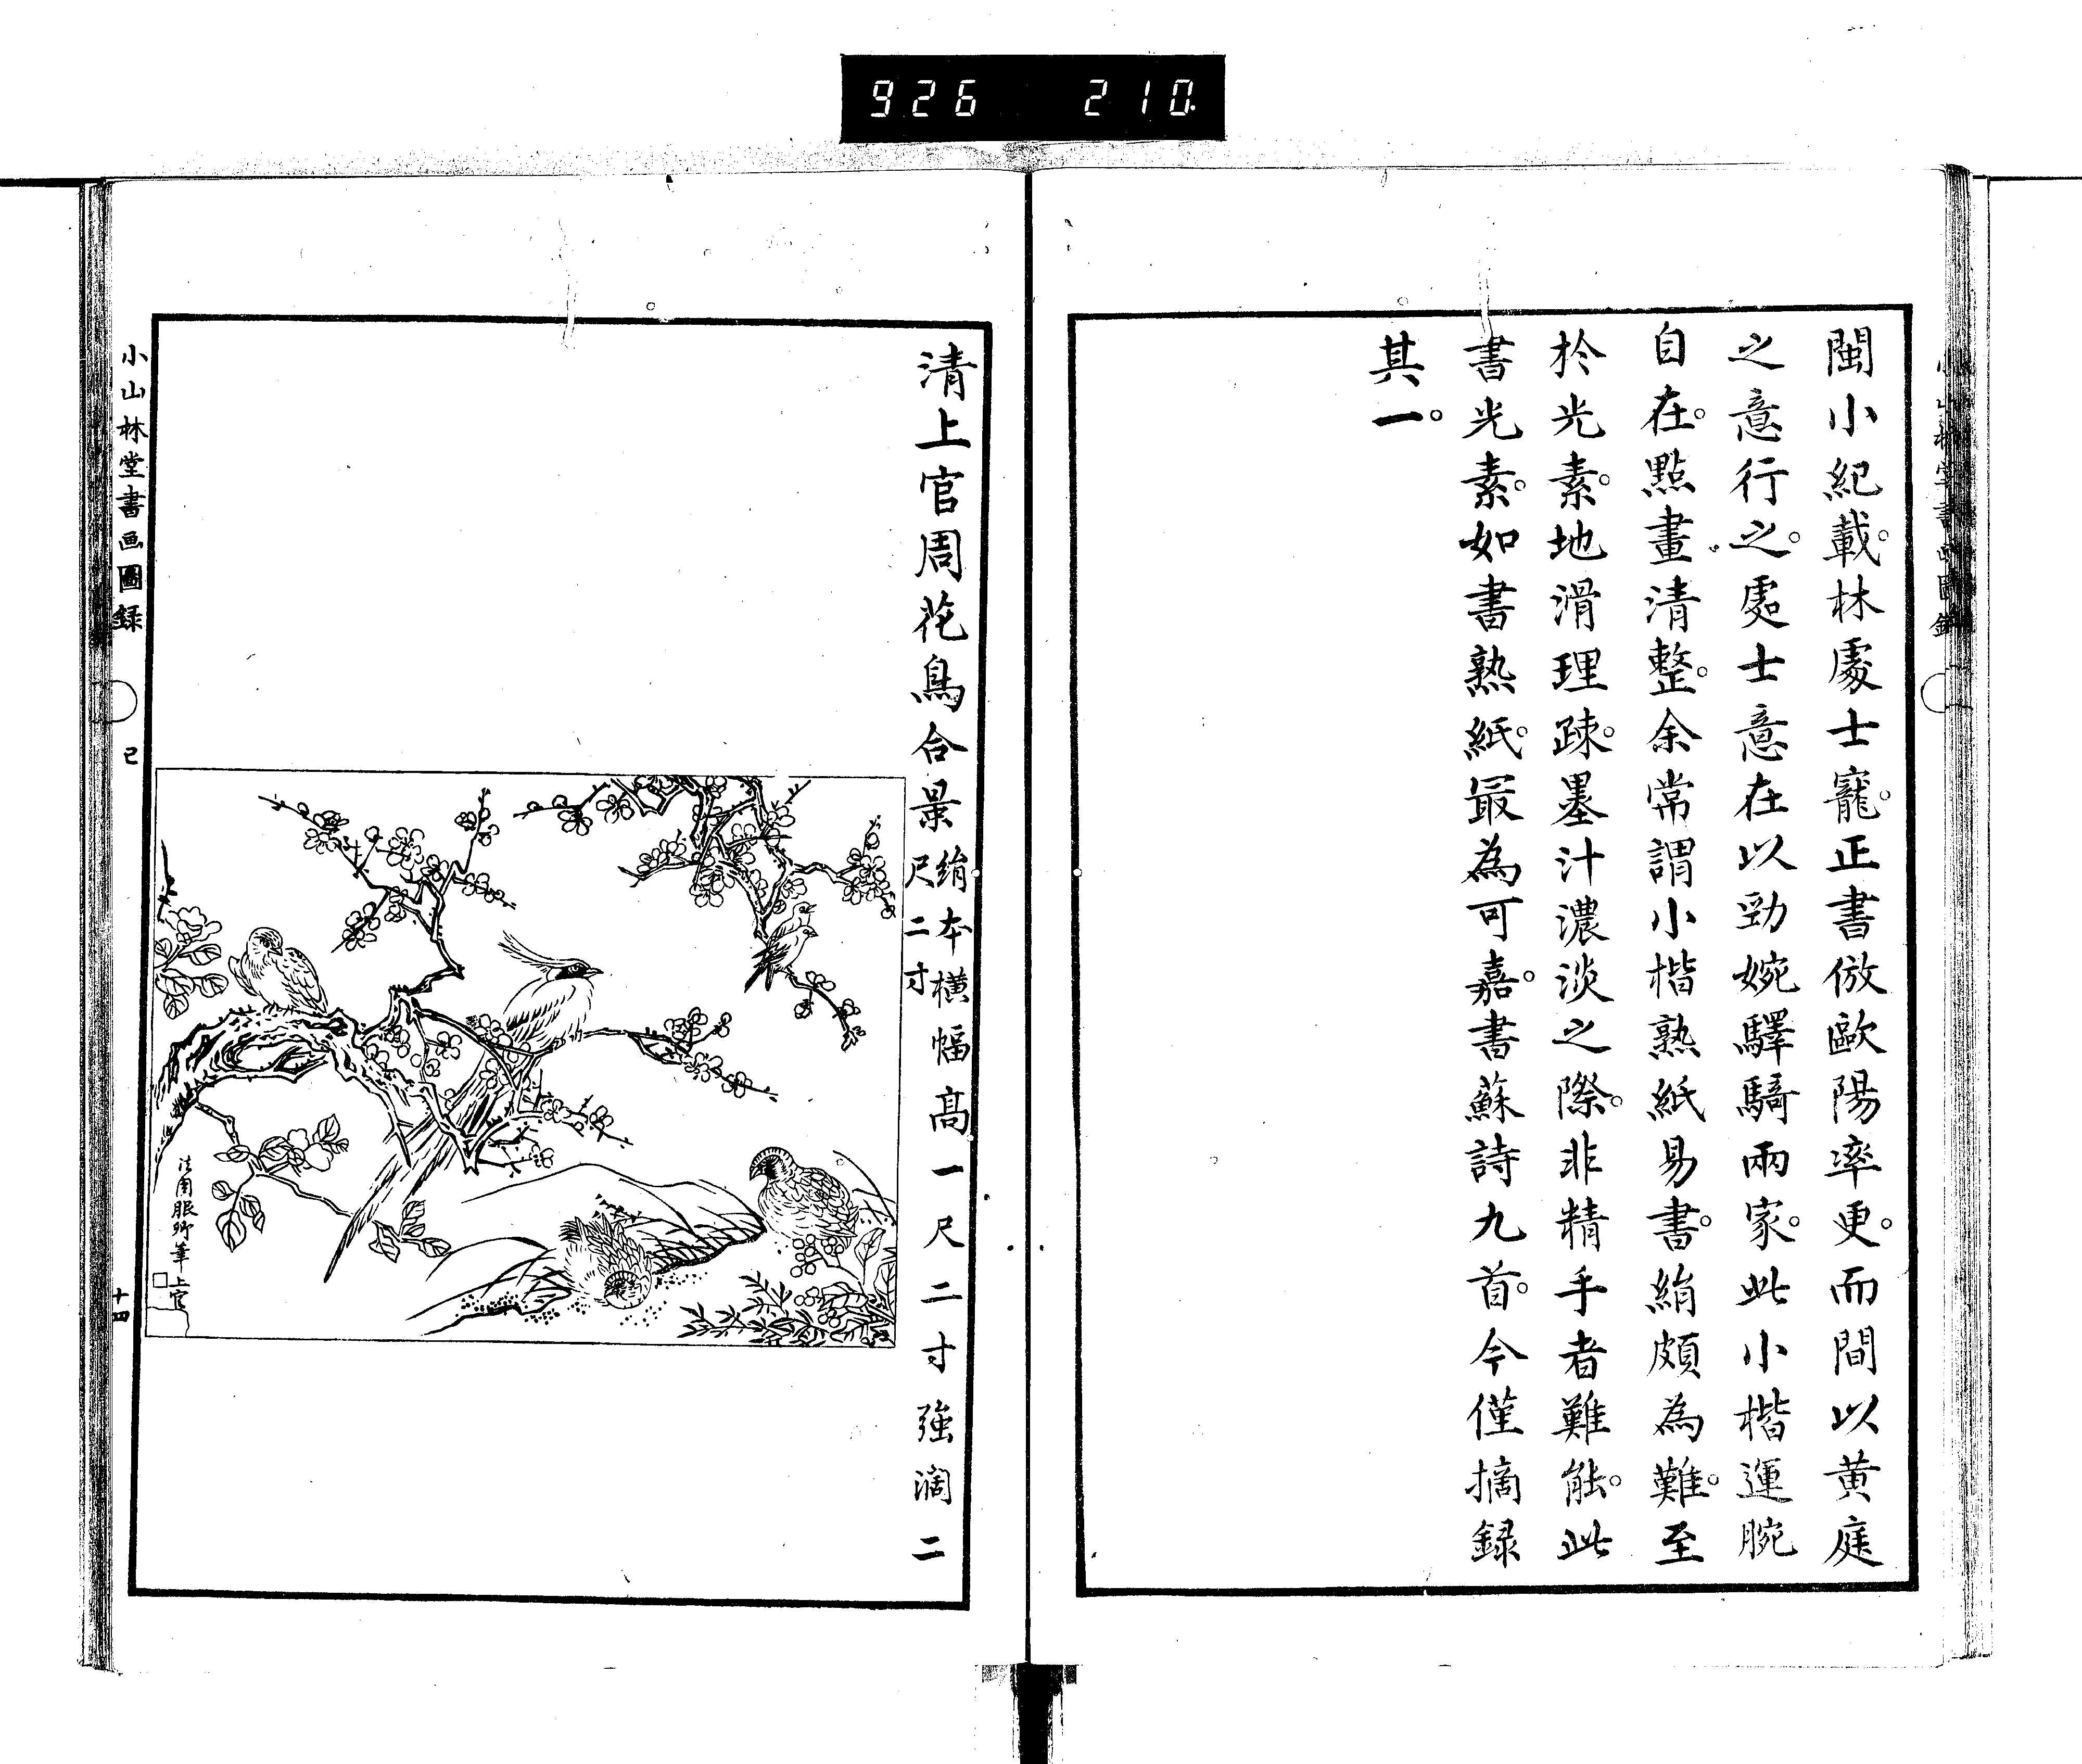 926 210
閩小紀載。林處士寵。正書倣歐陽率更。而間以黄庭
之意行之。處士意在以勁婉驛騎兩家。此小楷運腕
自在。點畫清整。余常謂小楷熟紙易書。絹頗為難。至
於光素。地滑理疎。墨汁濃淡之際。非精手者難能。此
書光素。如書熟紙。最為可嘉。書蘇詩九首。今僅摘録
其一。
清上官周花鳥合景 絹本横幅高一尺二寸強濶二
尺二寸
法眼
筆上官
小山林堂書画圖録
己
十四